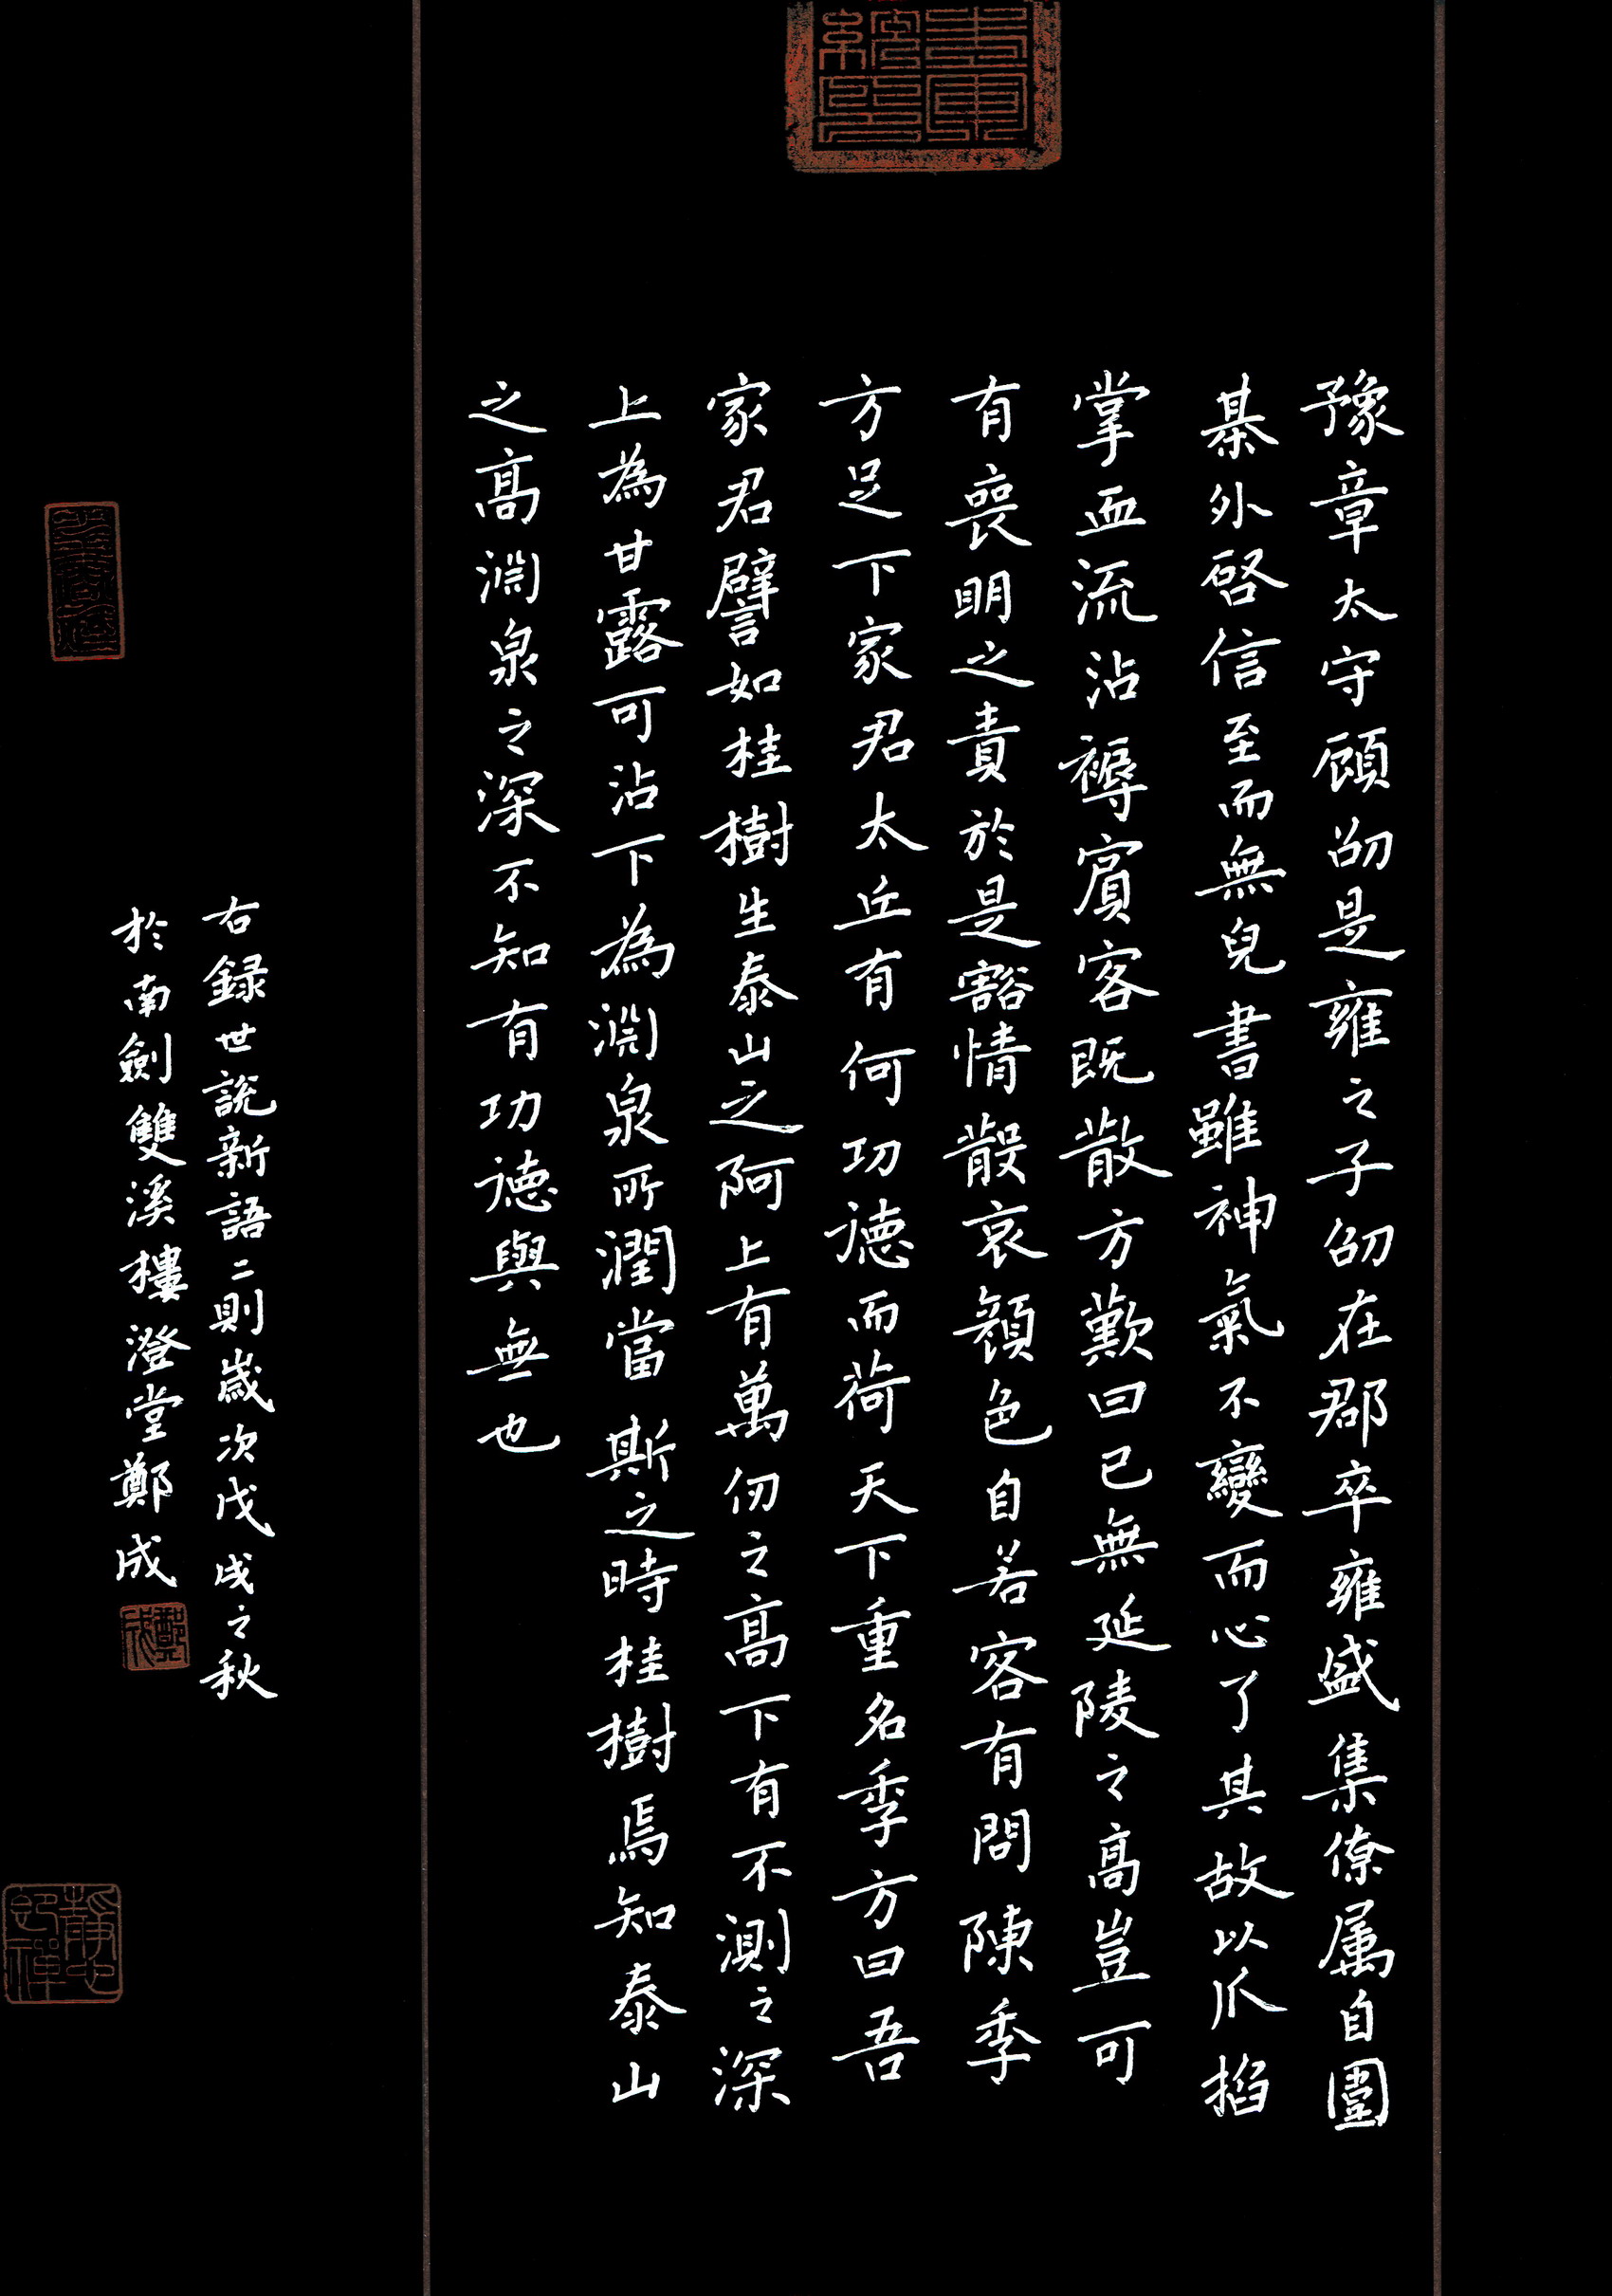 豫章太守顧劭是雍之子劭在郡卒雍盛集僚属自圍
棊外啓信至而無兒書雖神氣不變而心了其故以爪掐
掌血流沾褥賓客既散方歎曰已無延陵之高豈可
有喪明之責於是豁情散哀顏色自若客有問陳季
方足下家君太丘有何功德而荷天下重名季方曰吾
家君譬如桂樹生泰山之阿上有萬仞之高下有不測之深
上為甘露可沾下為淵泉所潤當斯之時桂樹焉知泰山
之高淵泉之深不知有功德與無也
右録世說新語二則歲次戊戌之秋
於南劍雙溪樓澄堂鄭成
鄭成